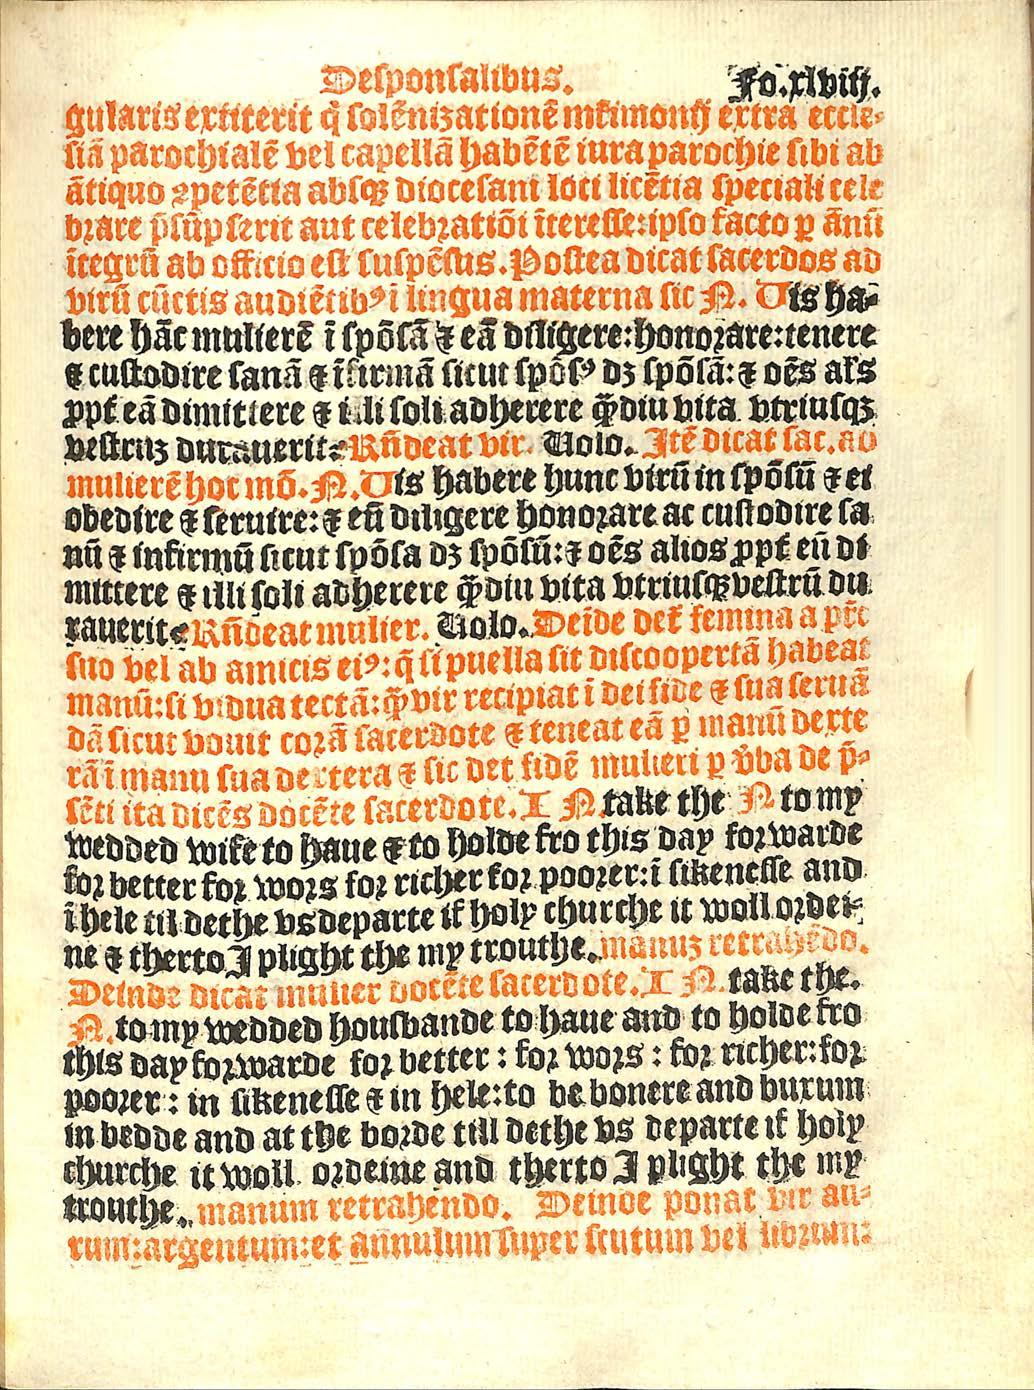 Desponsalibus. Fo.xlviij.
gularis extiterit q̃ solẽnizationẽ mr̃imonij extra eccle⸗
siã parochialẽ vel capellã habẽtẽ iura parochie sibi ab
ãtiquo ꝯpetẽtia absqꝫ diocesani loci licẽtia speciali cele
brare p̃sũpserit aut celebratiõi ĩteresse:ipso facto ꝑ ãnũ
ĩtegrũ ab officio est suspẽsus. Postea dicat sacerdos ad
virũ cũctis audiẽtibꝰ ĩ lingua materna sic N. Uis ha⸗
bere hãc mulierẽ ĩ spõsã ⁊ eã diligere:honorare:tenere
⁊ custodire sanã ⁊ ĩfirmã sicut spõsꝰ dꝫ spõsã: ⁊ oẽs al̃s
ꝓpt̃ eã dimittere ⁊ illi soli adherere q̃̄diu vita vtriusqꝫ
vestruꝫ durauerit⸗ Rñdeat vir. Uolo. Itẽ dicat sac. ad
mulierẽ hoc mõ. N. Uis habere hunc virũ in spõsũ ⁊ ei
obedire ⁊ seruire: ⁊ eũ diligere honorare ac custodire sa
nũ ⁊ infirmũ sicut spõsa dꝫ spõsũ: ⁊ oẽs alios ꝓpt̃ eũ di
mittere ⁊ illi soli adherere q̃̄diu vita vtriusqꝫ vestrũ du
rauerit⸗ Rñdeat mulier. Uolo. Deĩde det̃ femina a pr̃e
suo vel ab amicis eiꝰ: q̃ si puella sit discoopertã habeat
manũ:si vidua tectã: q̃̄ vir recipiat ĩ dei fide ⁊ sua seruã
dã sicut vouit corã sacerdote ⁊ teneat eã ꝑ manũ dexte
rã ĩ manu sua dextera ⁊ sic det fidẽ mulieri ꝑ v̾ba de p̃⸗
sẽti ita dicẽs docẽte sacerdote. I N. take the N to my
wedded wife to haue ⁊ to holde fro this day forwarde
for better for wors for richer for poorer: ĩ sikenesse and
ĩ hele til dethe vs departe if holy churche it woll ordei⸗
ne ⁊ therto I plight the my trouthe. manuꝫ retrahẽdo.
Deinde dicat mulier docẽte sacerdote. I N. take the.
N. to my wedded housbande to haue and to holde fro
this day forwarde for better : for wors : for richer: for
poorer : in sikenesse ⁊ in hele: to be bonere and buxum
in bedde and at the borde till dethe vs departe if holy
churche it woll ordeine and therto I plight the my
trouthe. manum retrahendo. Deinde ponat vir au⸗
rum:argentum:et annulum super scutum vel librum: